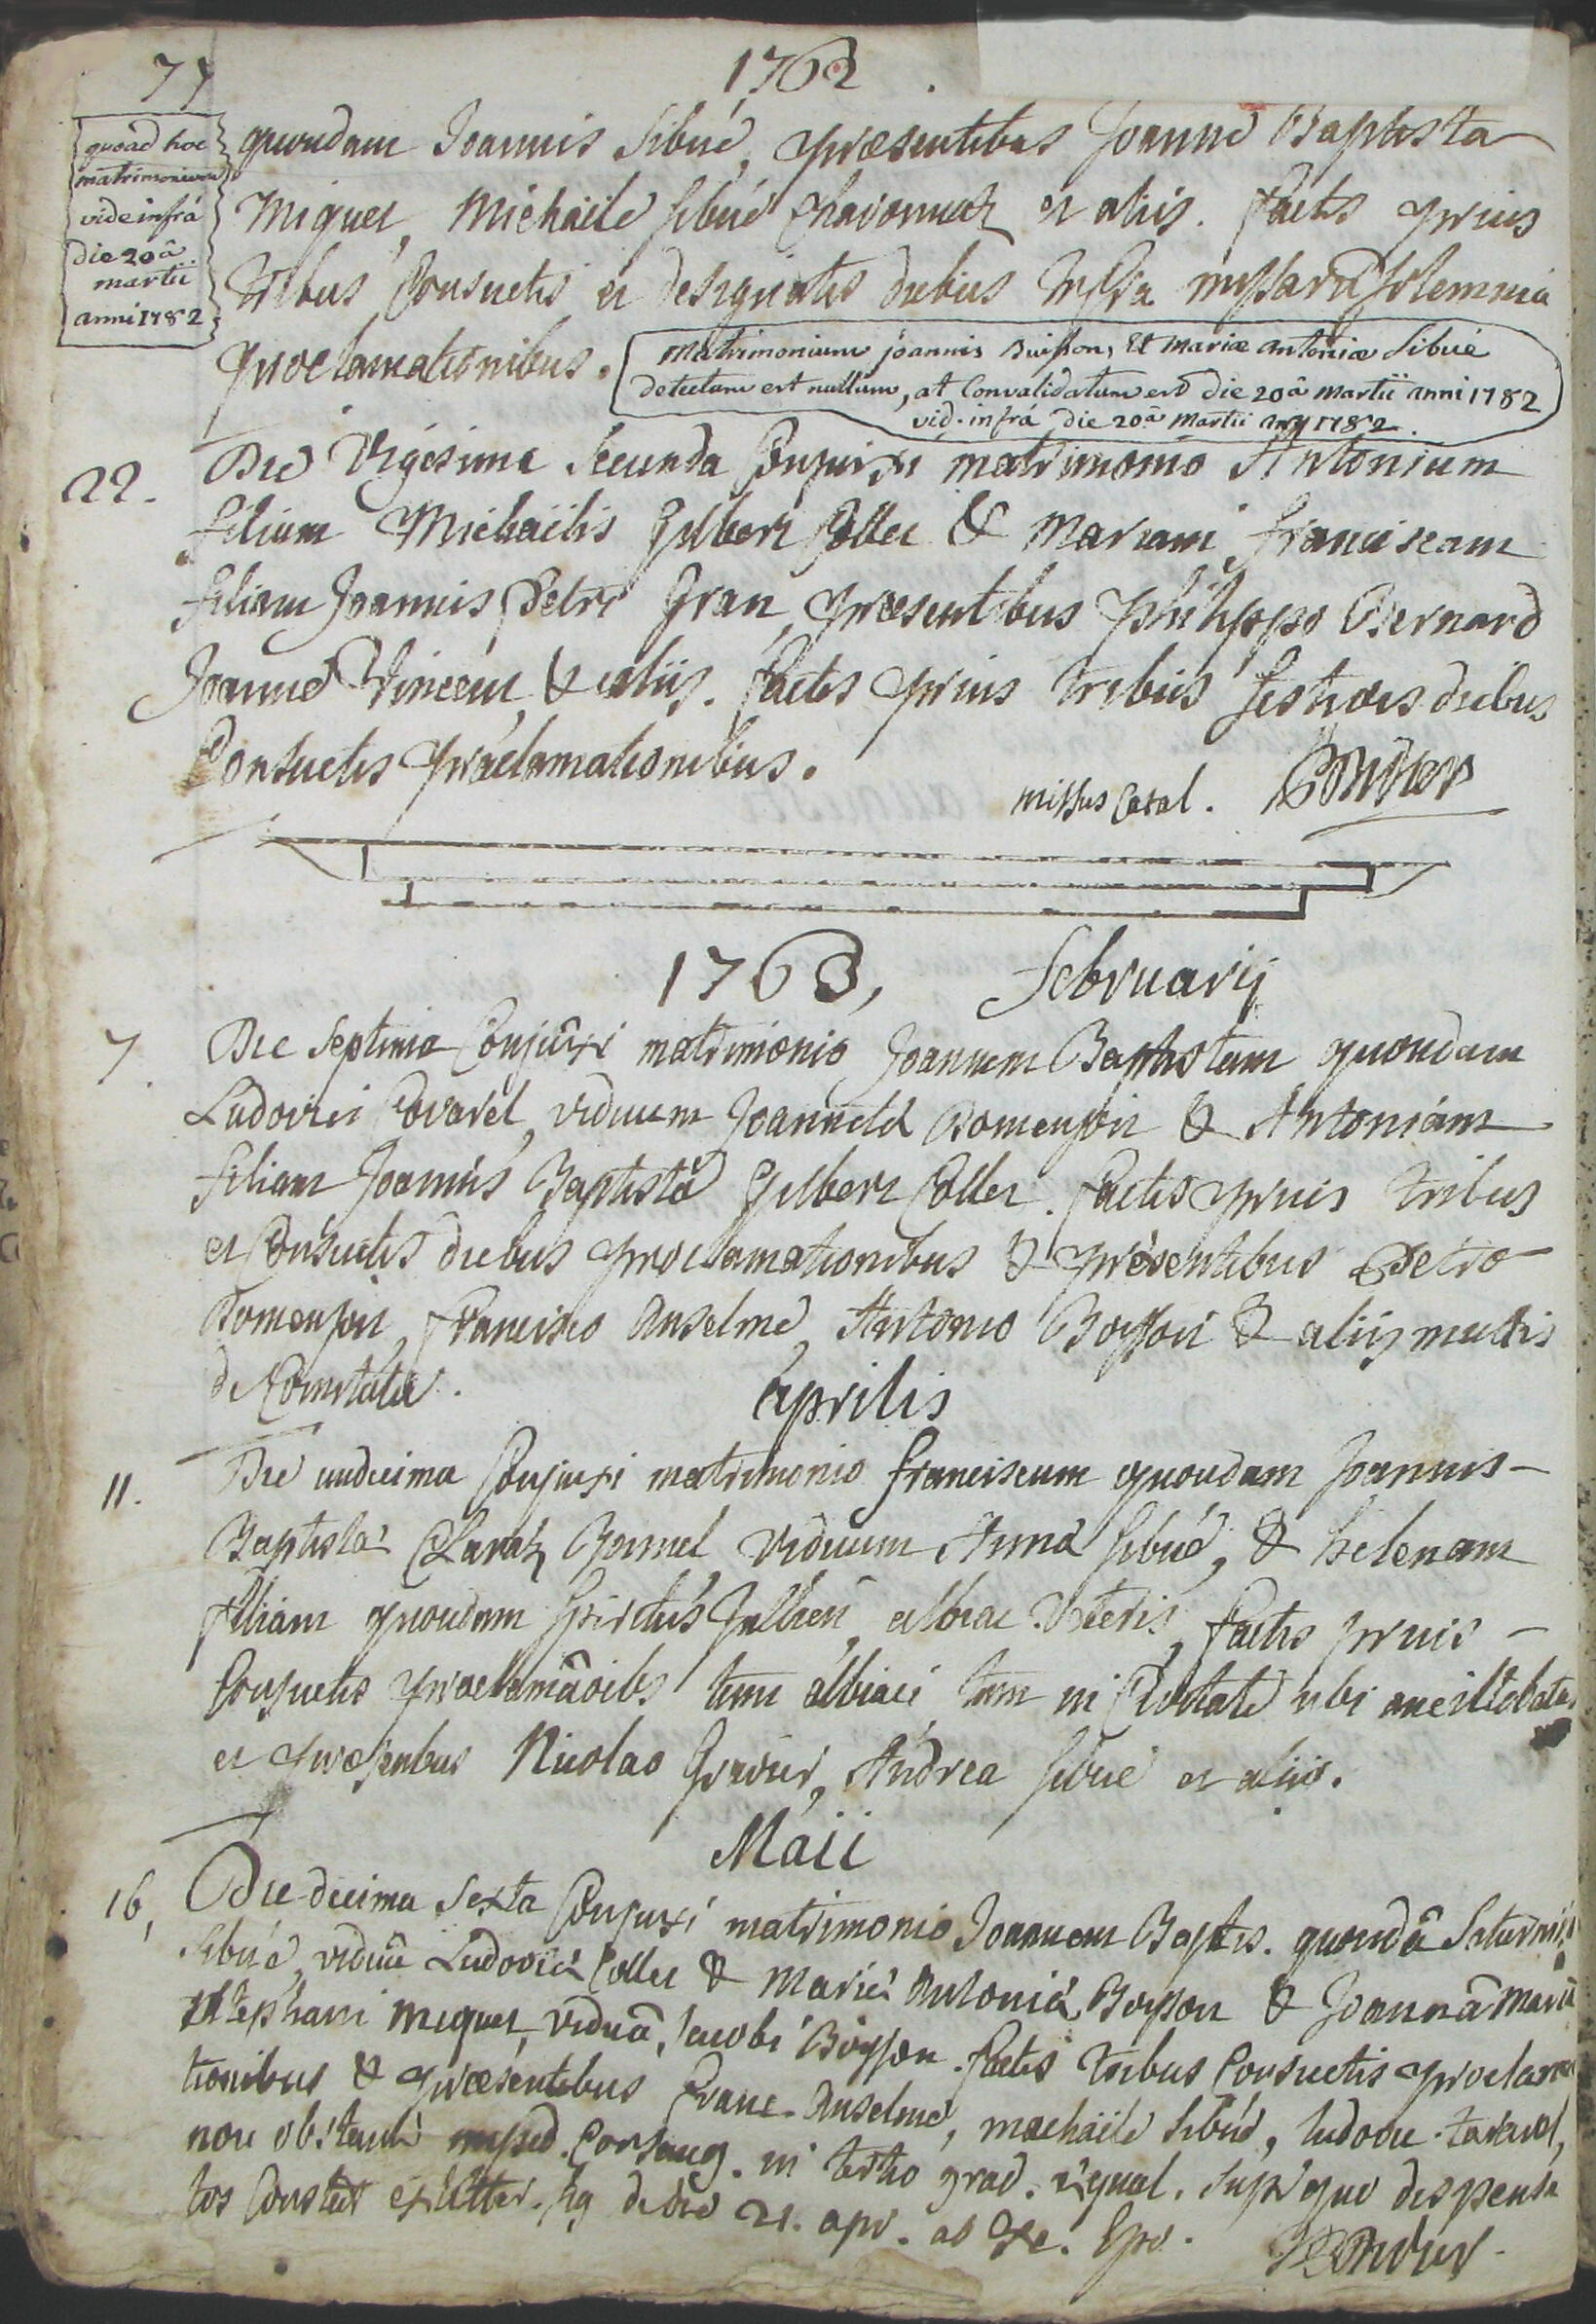 77
1762
quoad hoc
matrimonium
vide infrá
die 20â
martii
anni 1782
quondam Joannis Sibué, præsentibus Joanne Baptista
Miquet, Michaële Sibué Chavonnet et aliis. factis prius
tribus Consuetis et designatis diebus missarũ solemnia
proclamationibus.
Matrimonium joannis Buisson, Et Mariæ antoniæ Sibué
detectum est nullum, at Convalidatum est die 20â martii anni 1782
vid. infrá die 20â Martii 1782.
22.
Die Vigesima Secunda Conjunxi matrimonio Antonium
filium Michaëlis Gilbert Collet & Mariam Franciscam
filiam Joannis Petri Gran, præsentibus philippo Bernard
Joanne Vincent & aliis. factis prius tribus festivis diebus
Consuetis proclamationibus.
missus Casal.
1763, Februarij
7.
Die Septima Conjûxi matrimonio Joannem Baptistam quondam
Ludovici Covarel, viduum Joannetæ Domenjon & Antoniam
filiam Joannis Baptistæ Gilbert Collet. factis prius tribus
et Consuetis diebus proclamationibus & præsentibus Petro
Domenjon, Francisco Anselme, Antonio Boisson & aliis multis
de Comitatu.
Aprilis
11.
Die undecima Conjuxi matrimonio Franciscum quondam Joannis-
Baptistæ Claraz Bonnel Viduum Annæ Sibué, & helenam
filiam quondam Spiritûs Jullien albiac Veteris, factis prius -
Consuetis proclamâoibs tum albiaci tum in Civitate ubi ancillabatur
et præsentbus Nicolao Gravier, Andrea Sibué et aliis.
Maii
16,
Die decima Sexta Conjuxi matrimonio Joannem Baptis. quondã Saturnini
Sibué, viduũ Ludovicæ Collet & Mariæ Antoniæ Boisson & Joannã Mariã
Stephani Miquet, viduã Jacobi Boisson. factis tribus Consuetis proclama
tionibus & præsentibus Franc. Anselme, machaële Sibué, ludovic.
non obstante imped. Consang. in tertio grad. æqual. super quo dispensa
tos Constat ex litter. de die 21. apr. ab